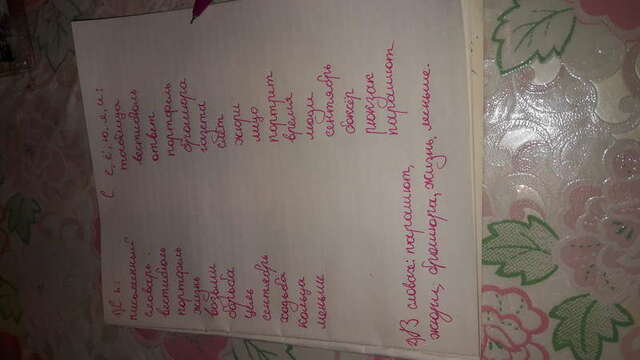 1) С ь:
письменный
словарь.
вестибюль
портфель
жизнь
возьми
борьба
цель
сентябрь
ходьба
кольца
меньше
С е, ё, ю, я, и:
таблица
вестибюль
ответ
портфель
брошюра
газета
слёт
жюри
лицо
портрет
время
люди
сентябрь
боксёр
рюкзак
парашют
2) В словах: парашют,
жюри, брошюра, жизнь, меньше.